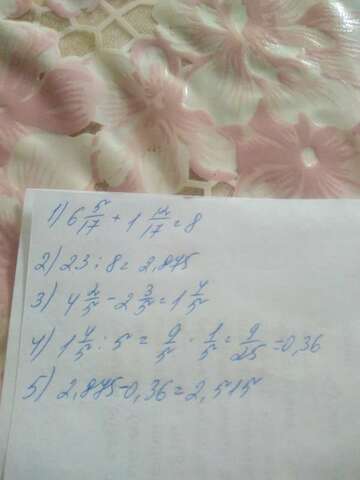 1) 6 5/17 + 1 12/17 = 8
2) 23 : 8 = 2,875
3) 4 2/5 - 2 3/5 = 1 4/5
4) 1 4/5 : 5 = 9/5 · 1/5 = 9/25 = 0,36
5) 2,875-0,36 = 2,515